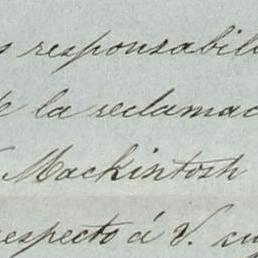 s responsabili
e la reclamac
Mackintosh
respecto á V. su